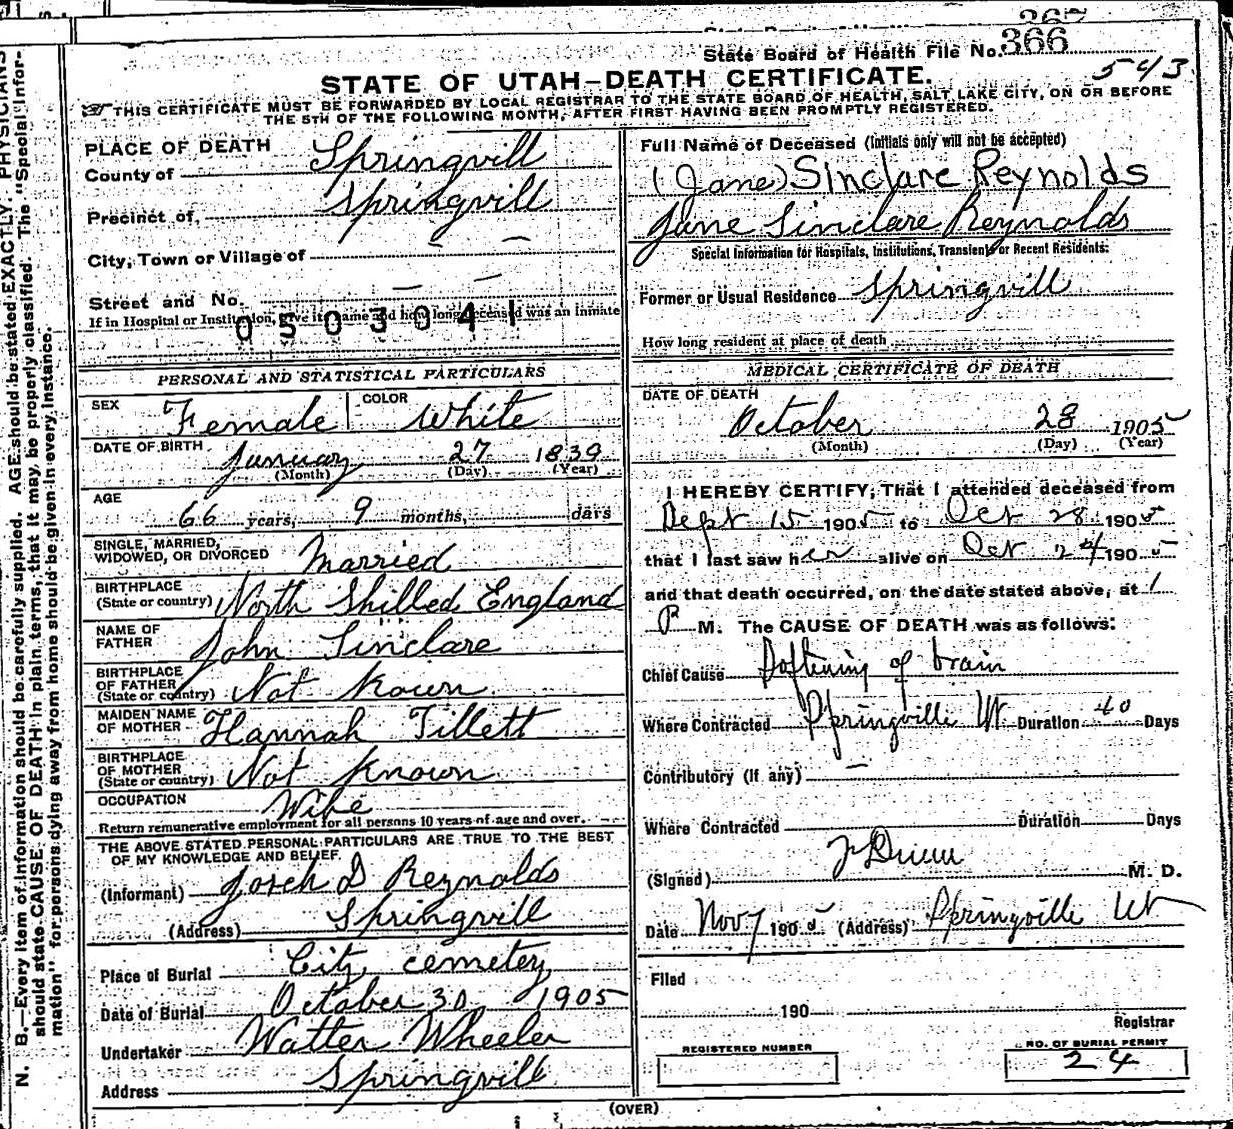 367
State Board of Health File No. 366
543
STATE OF UTAH–DEATH CERTIFICATE.
THIS CERTIFICATE MUST BE FORWARDED BY LOCAL REGISTRAR TO THE STATE BOARD OF HEALTH, SALT LAKE CITY, ON OR BEFORE
THE 5TH OF THE FOLLOWING MONTH, AFTER FIRST HAVING BEEN PROMPTLY REGISTERED.
N. B.—Every item of information should be carefully supplied. AGE should be stated EXACTLY. PHYSICIANS
should state CAUSE OF DEATH in plain terms, that it may be properly classified. The "Special Infor-
mation" for persons dying away from home should be given in every instance.
PLACE OF DEATH
County of Springvill
Precinct of, Springvill
City, Town or Village of —
Street and No. — —
If in Hospital or Institution, give its name and how long deceased was an inmate
0503041
PERSONAL AND STATISTICAL PARTICULARS
SEX Female COLOR White
DATE OF BIRTH January 27 1839
(Month) (Day) (Year)
AGE
66 years, 9 months, days
SINGLE, MARRIED,
WIDOWED, OR DIVORCED Married
BIRTHPLACE
(State or country) North Shilled England
NAME OF
FATHER John Sinclare
BIRTHPLACE
OF FATHER
(State or country) Not Kown
MAIDEN NAME
OF MOTHER Hannah Tillett
BIRTHPLACE
OF MOTHER
(State or country) Not Known
OCCUPATION Wife
Return remunerative employment for all persons 10 years of age and over.
THE ABOVE STATED PERSONAL PARTICULARS ARE TRUE TO THE BEST
OF MY KNOWLEDGE AND BELIEF.
(Informant) D Reynolds
(Address) Springvill
Place of Burial City cemetery
Date of Burial October 30 1905
Undertaker Walter Wheeler
Address Springvill
Full Name of Deceased (Initials only will not be accepted)
(Jane) Sinclare Reynolds
Jane Sinclare Reynolds
Special Information for Hospitals, Institutions, Transients or Recent Residents:
Former or Usual Residence Springvill
How long resident at place of death
MEDICAL CERTIFICATE OF DEATH
DATE OF DEATH
October 28 1905
(Month) (Day) (Year)
I HEREBY CERTIFY, That I attended deceased from
Sept 15 1905 to Oct 28 1905
that I last saw her alive on Oct 24 1905
and that death occurred, on the date stated above, at 1
P M. The CAUSE OF DEATH was as follows:
Chief Cause Softening of brain
Where Contracted Springville Ut Duration 40 Days
Contributory (If any) —
Where Contracted Duration Days
(Signed) M. D.
Date Nov 7 1905 (Address) Springville Ut
Filed
190
Registrar
REGISTERED NUMBER
NO. OF BURIAL PERMIT
24
(OVER)